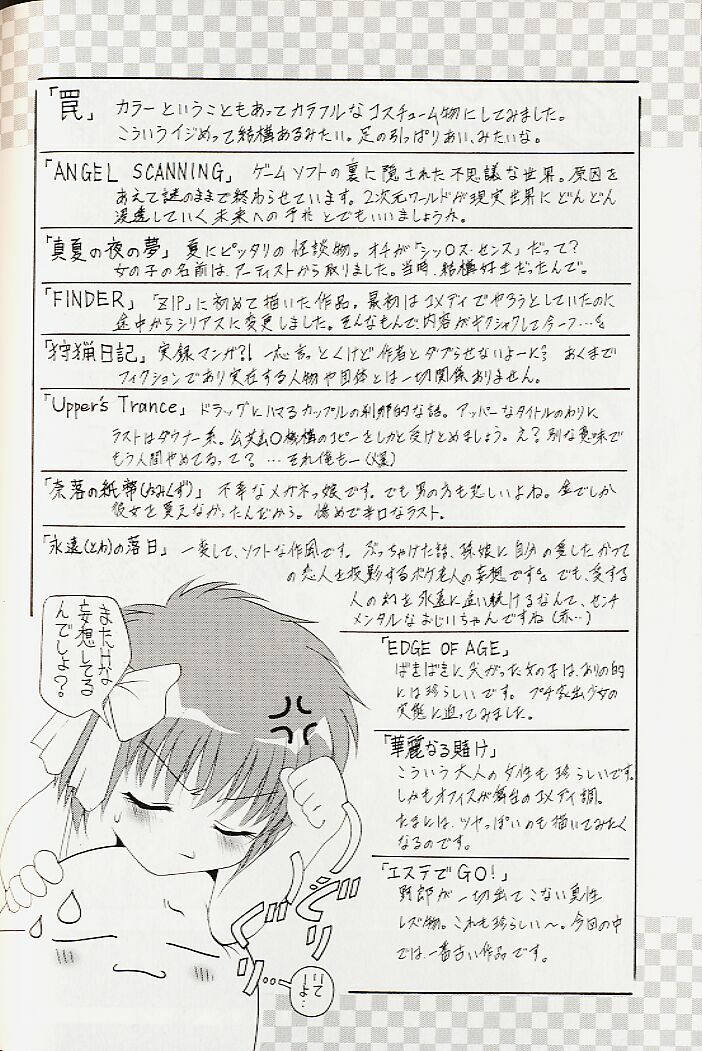 「罠」 カラーということもあってカラフルなコスチューム物にしてみました。
こういうイジめって結構あるみたい。足の引っぱりあい、みたいな。
「ANGEL SCANNING」 ゲームソフトの裏に隠された不思議な世界。原因を
あえて謎のままで終わらせています。2次元ワールドが現実世界にどんどん
浸透していく未来への予兆とでもいいましょうか。
「真夏の夜の夢」 夏にピッタリの怪談物。オチが「シッ○ス・センス」だって?
女の子の名前は、アーティストから取りました。当時、結構好きだったんで。
「FINDER」 「ZIP」に初めて描いた作品。最初はコメディでやろうとしていたのに
途中からシリアスに変更しました。そんなもんで、内容がギクシャクして
「狩猟日記」 実録マンガ?! 一応言っとくけど作者とダブらせないよーに? あくまで
フィクションであり実在する人物や団体とは一切関係ありません。
「Upper's Trance」 ドラッグにハマるカップルの刹那的な話。アッパーなタイトルのわりに
ラストはダウナー系。公共広○機構のコピーをしかと受けとめましょう。え?別な意味で
もう人間やめてるって? …それ俺もー(爆)
「奈落の紙幣(かみくず)」 不幸なメガネっ娘です。でも男の方も悲しいよね。金でしか
彼女を買えなかったんだから。惨めで辛口なラスト。
「永遠(とわ)の落日」 一変して、ソフトな作風です。ぶっちゃけた話、孫娘に自分の愛したかつて
の恋人を投影するボケ老人の妄想です。でも、愛する
人の幻を永遠に追い続けるなんて、センチ
メンタルなおじいちゃんですね(赤…)
「EDGE OF AGE」
ばきばきに尖がった女の子は、ありの的
には珍らしいです。プチ家出少女の
実態に迫ってみました。
「華麗なる賭け」
こういう大人の女性も珍らしいです。
しかもオフィスが舞台のコメディ調。
たまには、ツヤっぽいのも描いてみたく
なるのです。
「エステでGO!」
野郎が一切出てこない異性
レズ物。これも珍らしい〜。今回の中
では、一番古い作品です。
またHな
妄想してる
んでしょ?
グリグリ
グリ…
いて
しよ…